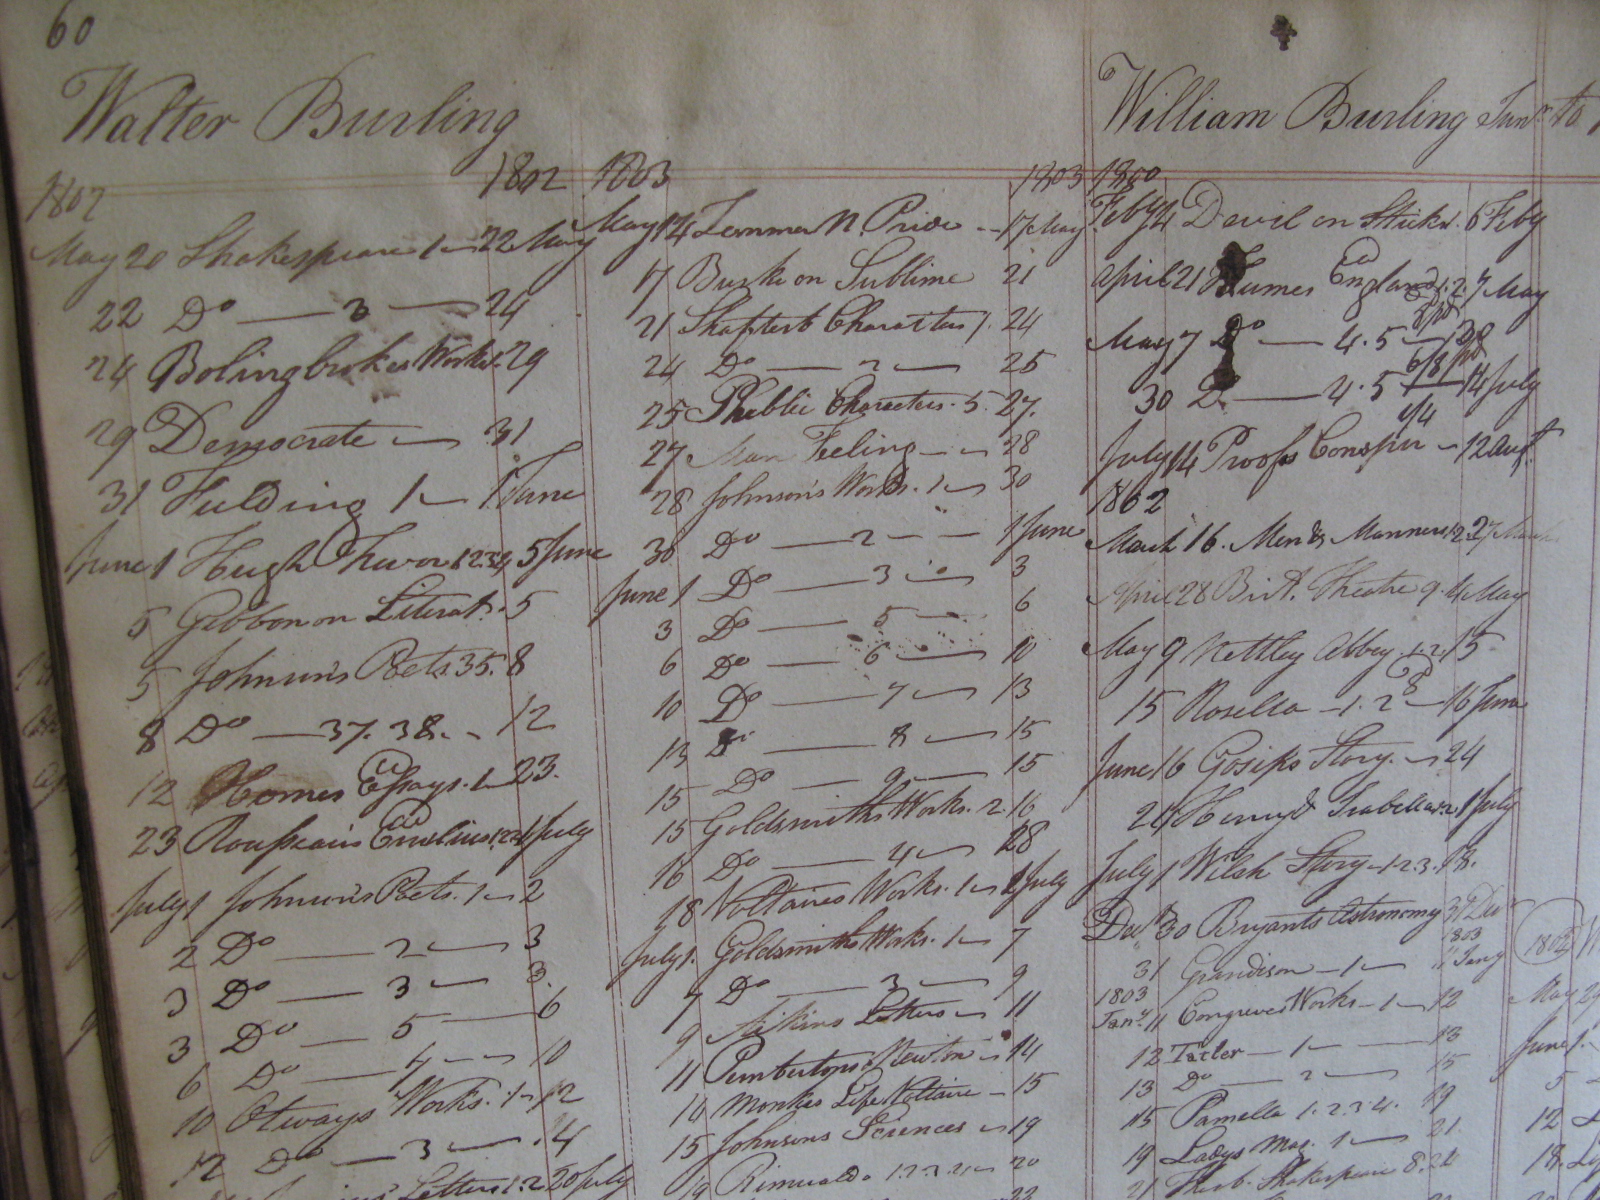 60
Walter Burling
1802 1802
May 20 Shakespeare 1 — 22 May
22 Do — 3 — 24
24 Bolingbrokes Works 29
29 Democrate — 31
31 Fielding 1 — 1 June
June 1 Hugh Trevor 1.2.3.4 5 June
5 Gibbon on Literat. 5
5 Johnson's Poets. 35. 8
8 Do — 37. 38. - 12
12 Homes Essays. 1 — 23.
23 Rousseau's Emelius 1 July
July 1 Johnson's Poets. 1 — 2
2 Do — 2 — 3
3 Do — 3 — 3.
3 Do — 5 — 6
6 Do — 7 — 10
10 Otways Works. 1 — 12
12 Do — 3 — 14
Letters 1.2 20 July
1803 1803
May 14 17 May
17 Burke on Sublime 21
21 Charact 1. 24
24 Do — 2 — 25
25 Public Characters. 5. 27.
27 Man Feeling — 28
28 Johnson's Works. 1 — 30
30 Do — 2 — 1 June
June 1 Do — 3 — 3
3 Do — 5 — 6
6 Do — 6 — 10
10 Do — 7 — 13
13 Do — 8 — 15
15 Do — 9 — 15
15 Goldsmiths Works. 2. 16
16 Do — 4 — 28
18 Voltaires Works. 1 — 1 July
July 1. Goldsmiths Works. 1 — 7
7 Do — 3 — 9
9 Aikins Letters — 11
11 Pembertons Newton — 14
14 Monkes Life Voltaire — 15
15 Johnsons Sciences — 19
19 Rimualdo 1.2.3.4 — 20
22
William Burling Junr. to
1800
Feby 4 Devil on Sticks. 6 Feby
April 21 Humes England 1.2 7 May
May 7 Do — 4.5 — 30
30 Do — 4.5 — 14 July
July 14 Proofs Conspir — 12 Augt.
1802
March 16. Men & Manners 1.2. 27 March
April 28 Brit. Theatre 9. 4 May
May 9 Nettley Abbey. 1.2. 15
15 Rosella — 1.2 — 16 June
June 16 Gosips Story. — 24
24 Henry & Isabella 1.2. 1 July
July 1 Welsh Story — 1.2.3. 18.
Decr. 30 Bryants Astronomy 31 Decr
1803
31 Grandison — 1 — 11 Jany
1803
Jany 11 Congreves Works — 1 — 12
12 Tatler — 1 — 13
13 Do — 2 — 15
15 Pamella 1.2.3.4. 19
19 Ladys Mag. 1 — 21.
21 Theob. Shakespeare 8. 24
1802
May 29
June 1.
5
12
18.